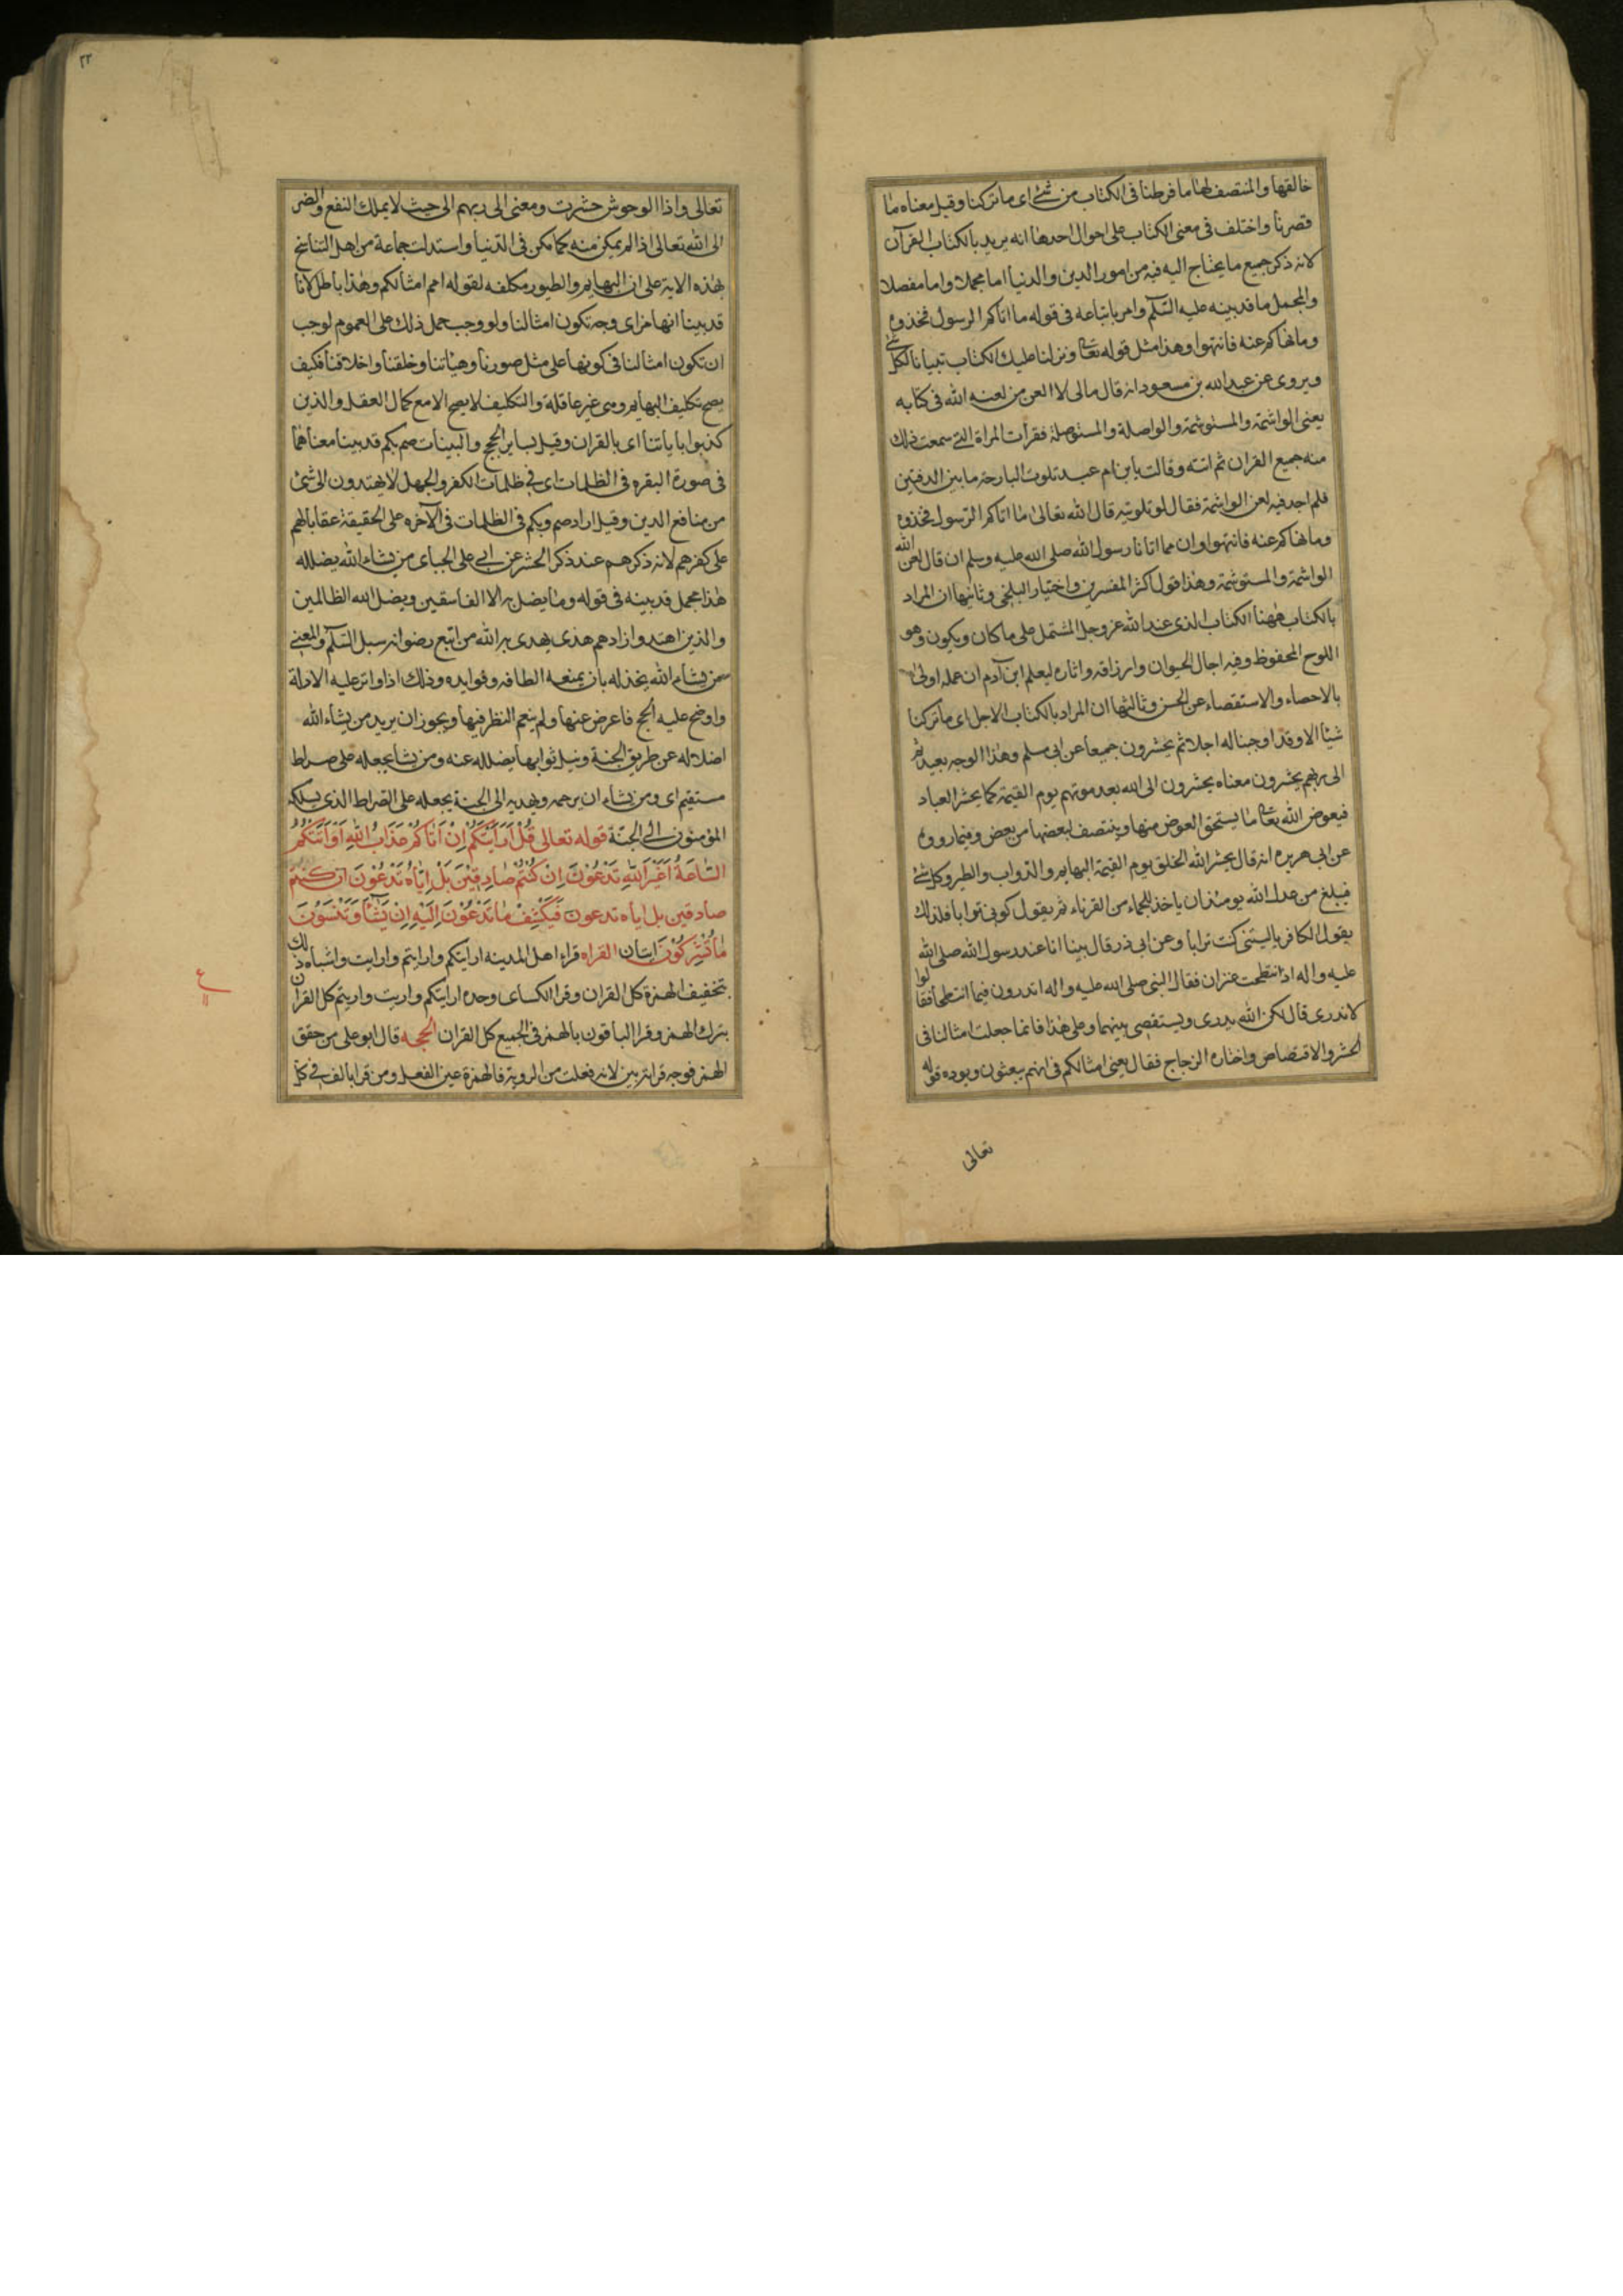 خالقها والمنتصف لها ما فرطنا في الكتاب من شئ اى ما تركنا وقيل معناه ما
قصرنا واختلف في معنى الكتاب على احوال احدها انه يريد بالكتاب القرآن
لانه ذكر جميع ما يحتاج اليه فيه من امور الدين والدنيا اما مجملا واما مفصلا
والمجمل ما قد بينه عليه السّلم وامر باتباعه في قوله ما اتاكم الرسول فخذوه
وما نهاكم عنه فانتهوا وهذا مثل قوله تعا ونزلنا عليك الكتاب تبيانا لكل شئ
ويروى عن عبد الله بن مسعود انه قال مالى لا العن من لعنه الله في كتابه
يعنى الواشمة والمستوشمة والواصلة والمستوصلة فقرأت المراة التى سمعت ذلك
منه جميع القران ثم اتته وقالت يا بن ام عبد تلوت البارحة ما بين الدفتين
فلم اجد فيه لعن الواشمة فقال لو تلوتيه قال الله تعالى ما اتاكم الرسول فخذوه
وما نهاكم عنه فانتهوا وان مما اتانا رسول الله صلى الله عليه وسلم ان قال لعن الله
الواشمة والمستوشمة وهذا قول اكثر المفسرين واختيار البلخى وثانيها ان المراد
بالكتاب ههنا الكتاب الذى عند الله عز وجل المشتمل على ما كان ويكون وهو
اللوح المحفوظ وفيه اجال الحيوان وارزاقه واثاره ليعلم ابن آدم ان عمله اولى
بالاحصاء والاستقصاء عن الحسن وثالثها ان المراد بالكتاب الاجل اى ما تركنا
شيئا الا وقد اوجبنا له اجلا ثم يحشرون جميعا عن ابى مسلم وهذا الوجه بعيد ثم
الى ربهم يحشرون معناه يحشرون الى الله بعد موتهم يوم القيمة كما يحشر العباد
فيعوض الله تعا ما يستحق العوض منها وينتصف لبعضها من بعض وفيما رووه
عن ابى هريره انه قال يحشر الله الخلق يوم القيمة البهايم والدواب والطير وكل شئ
فيبلغ من عدل الله يومئذ ان ياخذ للجماء من القرناء ثم يقول كونى ترابا فلذلك
يقول الكافر ياليتنى كنت ترابا وعن ابى ذر قال بينا انا عند رسول الله صلى الله
عليه واله اذ انتطحت عنزان فقال النبى صلى الله عليه واله اتدرون فيما انتطحا فقالوا
لا ندرى قال لكن الله يدرى ويستقصى بينهما وعلى هذا فانما جعلت امثالنا في
الحشر والاقتصاص واختاره الزجاج فقال يعنى امثالكم في انهم يبعثون ويوده قوله
تعالى
٢٢
تعالى واذا الوحوش حشرت ومعنى الى ربهم الى حيث لا يملك النفع والضر
الى الله تعالى اذا لم يمكن منه كما مكن في الدنيا واستدلت جماعة من اهل التناسخ
بهذه الاية على ان البهايم والطيور مكلفه لقوله امم امثالكم وهذا باطل لانا
قد بينا انها من اى وجه تكون امثالنا ولو وجب حمل ذلك على العموم لوجب
ان تكون امثالنا في كونها على مثل صورنا وهيأتنا وخلقنا واخلاقنا فكيف
يصح تكليف البهايم وهى غير عاقلة والتكليف لا يصح الا مع كمال العقل والذين
كذبوا باياتنا اى بالقران وقيل بساير الحجج والبينات صم بكم قد بينا معناهما
في صورة البقره في الظلمات اى في ظلمات الكفر والجهل لا يهتدون الى شئ
من منافع الدين وقيل اراد صم وبكم في الظلمات في الآخره على الحقيقة عقابا لهم
على كفرهم لانه ذكرهم عند ذكر الحشر عن ابى على الجباى من يشاء الله يضلله
هذا مجمل قد بينه في قوله وما يضل به الا الفاسقين ويضل الله الظالمين
والذين اهتدوا زادهم هدى يهدى به الله من اتبع رضوانه سبل السّلم والمعنى
من يشاء الله يخذله بان يمنعه الطافه وفوايده وذلك اذا واتر عليه الادلة
واوضح عليه الحجج فاعرض عنها ولم ينعم النظر فيها ويجوز ان يريد من يشاء الله
اضلاله عن طريق الجنة ونيل ثوابها يضلله عنه ومن يشا يجعله على صراط
مستقيم اى ومن يشاء ان يرحمه ويهديه الى الجنة يجعله على الصراط الذى يسلكه
المؤمنون الى الجنّة قوله تعالى قُلْ اَرَاَيْتَكُمْ اِنْ اَتَاكُمْ عَذَابُ اللهِ اَوْ اَتَتْكُمُ
السَّاعَةُ اَغَيْرَ اللهِ تَدْعُوْنَ اِنْ كُنْتُمْ صَادِقِيْنَ بَلْ اِيَّاهُ تَدْعُوْنَ ان كنتم
صادقين بل اياه تدعون فَيَكْشِفُ مَا تَدْعُوْنَ اِلَيْهِ اِنْ يَشَآ وَتَنْسَوْنَ
مَا تُشْرِكُوْنَ ايتان القراه قراء اهل المدينه ارايتكم وارايتم وارايت واشباه ذلك
بتخفيف الهمزة كل القران وقرا الكساى وحده اريتكم واريت واريتم كل القران
بترك الهمز وقرا الباقون بالهمز في الجميع كل القران الحجه قال ابو على من حقق
الهمز فوجه قراته بين لانه فعلت من الروية فالهمزة عين الفعل ومن قرا بالف في كل
ع